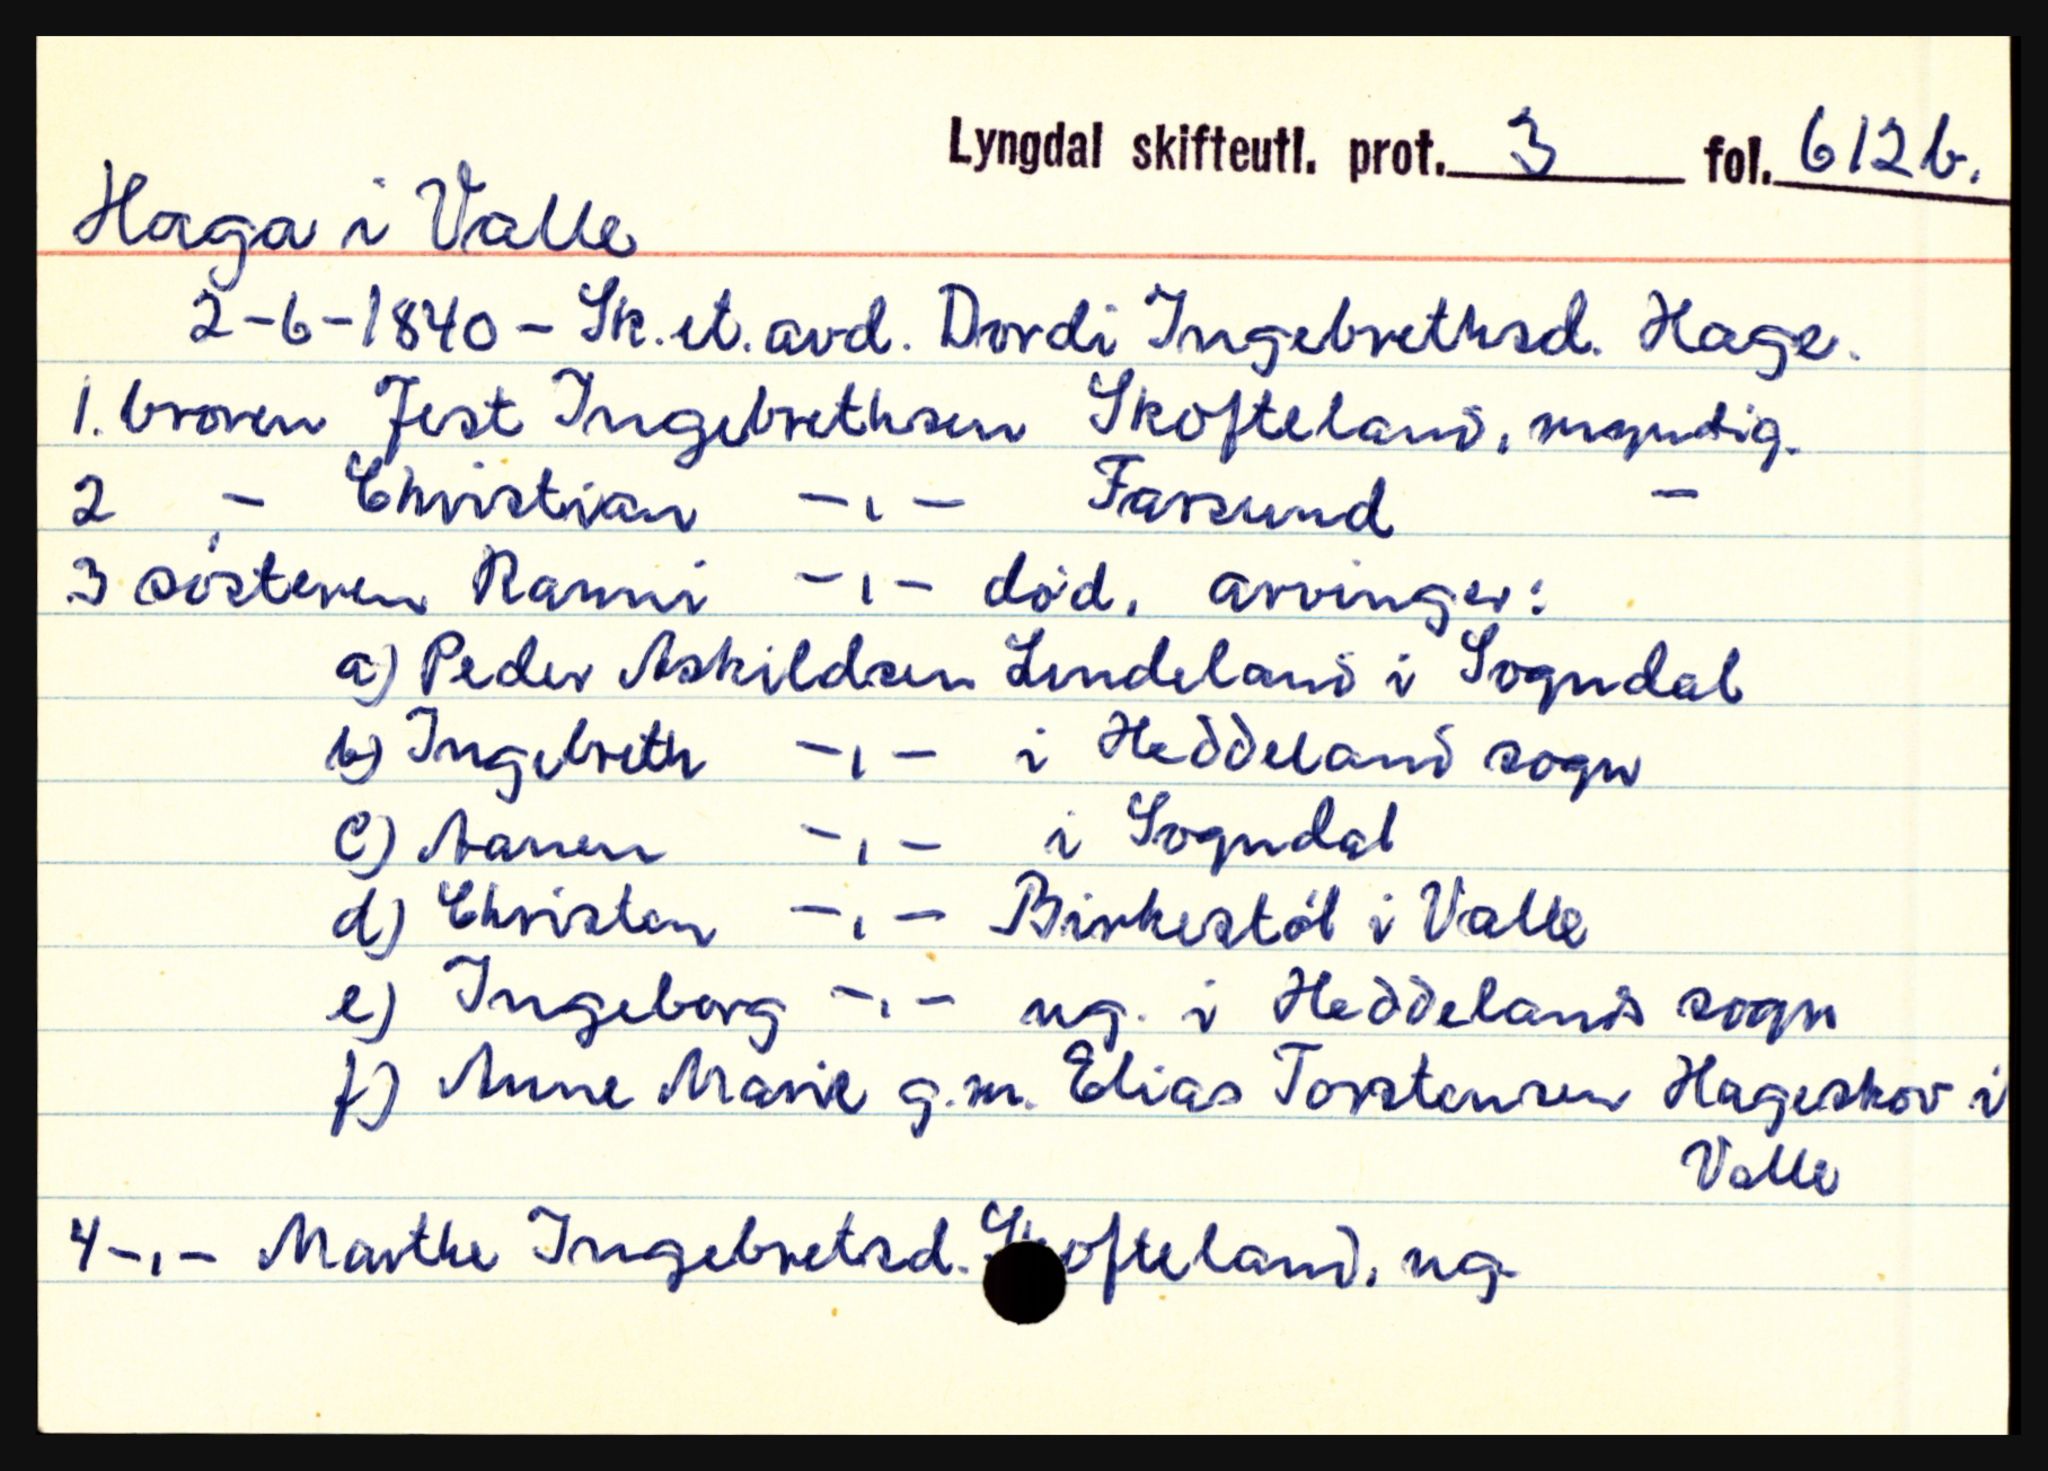 Lyngdal skifteutl. prot. 3 fol. 612b.
Haga i Valle
2-6-1840 - Sk. et. avd. Dordi Ingebrethsd. Hage.
1. broren Jest Ingebrethsen Skofteland, myndig.
2 - Christian -,- Farsund -
3 søsteren Ranni -,- død, arvinger:
a) Peder Askildsen Lindeland i Sogndal
b) Ingebreth -,- i Heddeland sogn
c) Aanen -,- i Sogndal
d) Christen -,- Birkestøl i Valle
e) Ingeborg -,- ug. i Heddelands sogn
f) Anne Marie g.m. Elias Torstensen Hageskov i
Valle
4 -,- Marthe Ingebretsd. Skofteland, ug.